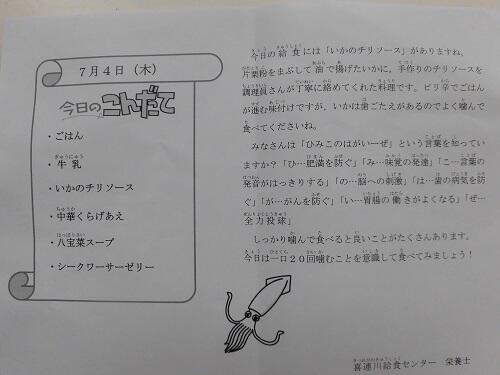 7月4日(木)
今日のこんだて
・ごはん
・牛乳
・いかのチリソース
・中華くらげあえ
・八宝菜スープ
・シークワーサーゼリー
今日の給食には「いかのチリソース」がありますね。
片栗粉をまぶして油で揚げたいかに、手作りのチリソースを
調理員さんが丁寧に絡めてくれた料理です。ピリ辛でごはん
が進む味付けですが、いかは歯ごたえがあるのでよく噛んで
食べてくださいね。
みなさんは「ひみこのはがいーぜ」という言葉を知ってい
ますか?「ひ…肥満を防ぐ」「み…味覚の発達」「こ…言葉の
発音がはっきりする」「の…脳への刺激」「は…歯の病気を防
ぐ」「が…がんを防ぐ」「い…胃腸の働きがよくなる」「ぜ…
全力投球」
しっかり噛んで食べると良いことがたくさんあります。
今日は一口20回噛むことを意識して食べてみましょう!
喜連川給食センター 栄養士